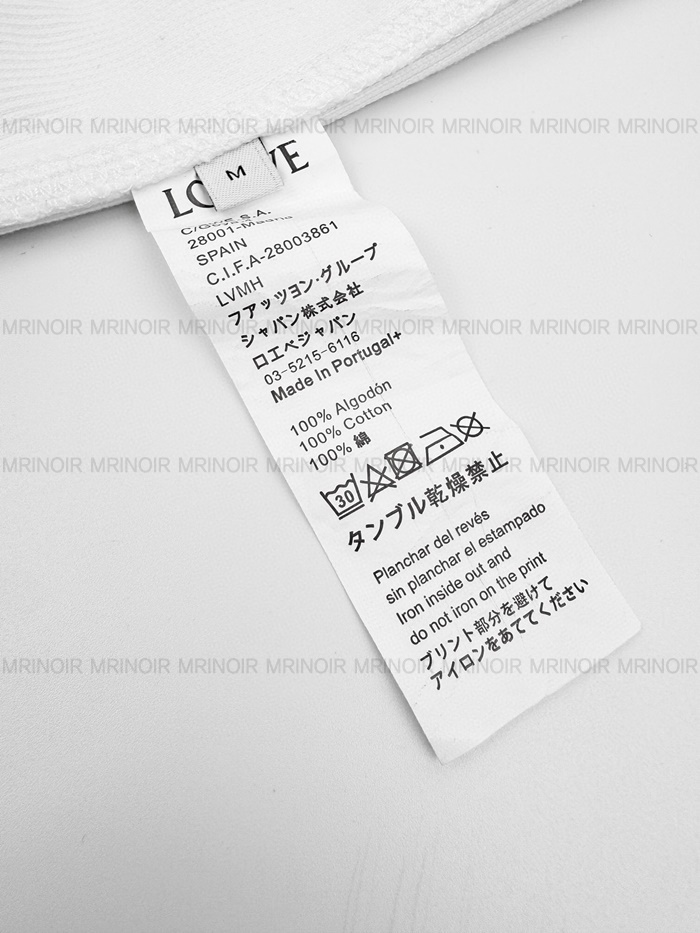 MRINOIR MRINOIR MRINOIR MRINOIR MRINOIR MRINOIR MRINOIR MRINOIR
M
C/Goya
28001-Madrid
SPAIN
C.I.F.A-28003861
LVMH
フアッツョン·グルーブ
シャパン株式会社
ロエベジャパン
03-5215-6116
Made In Portugal+
MRINOIR MRINOIR MRINOIR MRINOIR MRINOIR MRINOIR MRINOIR MRINOIR
100% Algodón
100% Cotton
100% 綿
MRINOIR MRINOIR MRINOIR MRINOIR MRINOIR MRINOIR MRINOIR MRINOIR
30
タンブル乾燥禁止
Planchar del revés
sin planchar el estampado
Iron inside out and
do not iron on the print
プリント部分を避けて
アイロンをあててください
MRINOIR MRINOIR MRINOIR MRINOIR MRINOIR MRINOIR MRINOIR MRINOIR